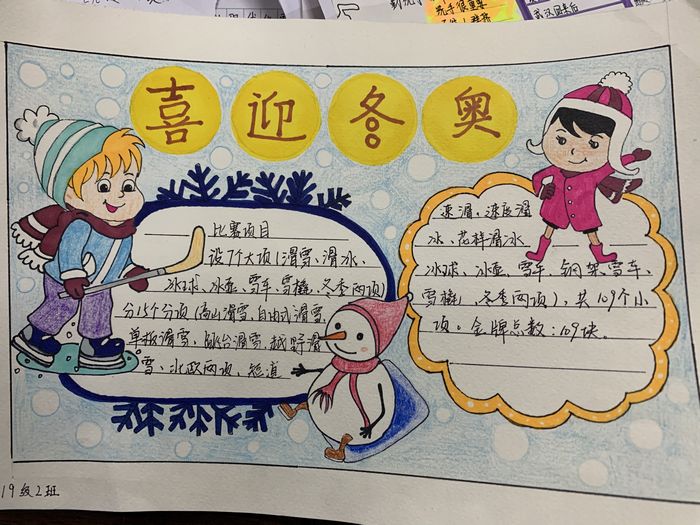 喜迎冬奥
比赛项目
设7个大项(滑雪、滑冰、
冰球、冰壶、雪车、雪橇、冬季两项)
分15个分项(高山滑雪、自由式滑雪、
单板滑雪、跳台滑雪、越野滑
雪、北欧两项、短道
速滑、速度滑
冰、花样滑冰、
冰球、冰壶、雪车、钢架雪车、
雪橇、冬季两项)，共109个小
项。金牌总数：109块。
19级2班